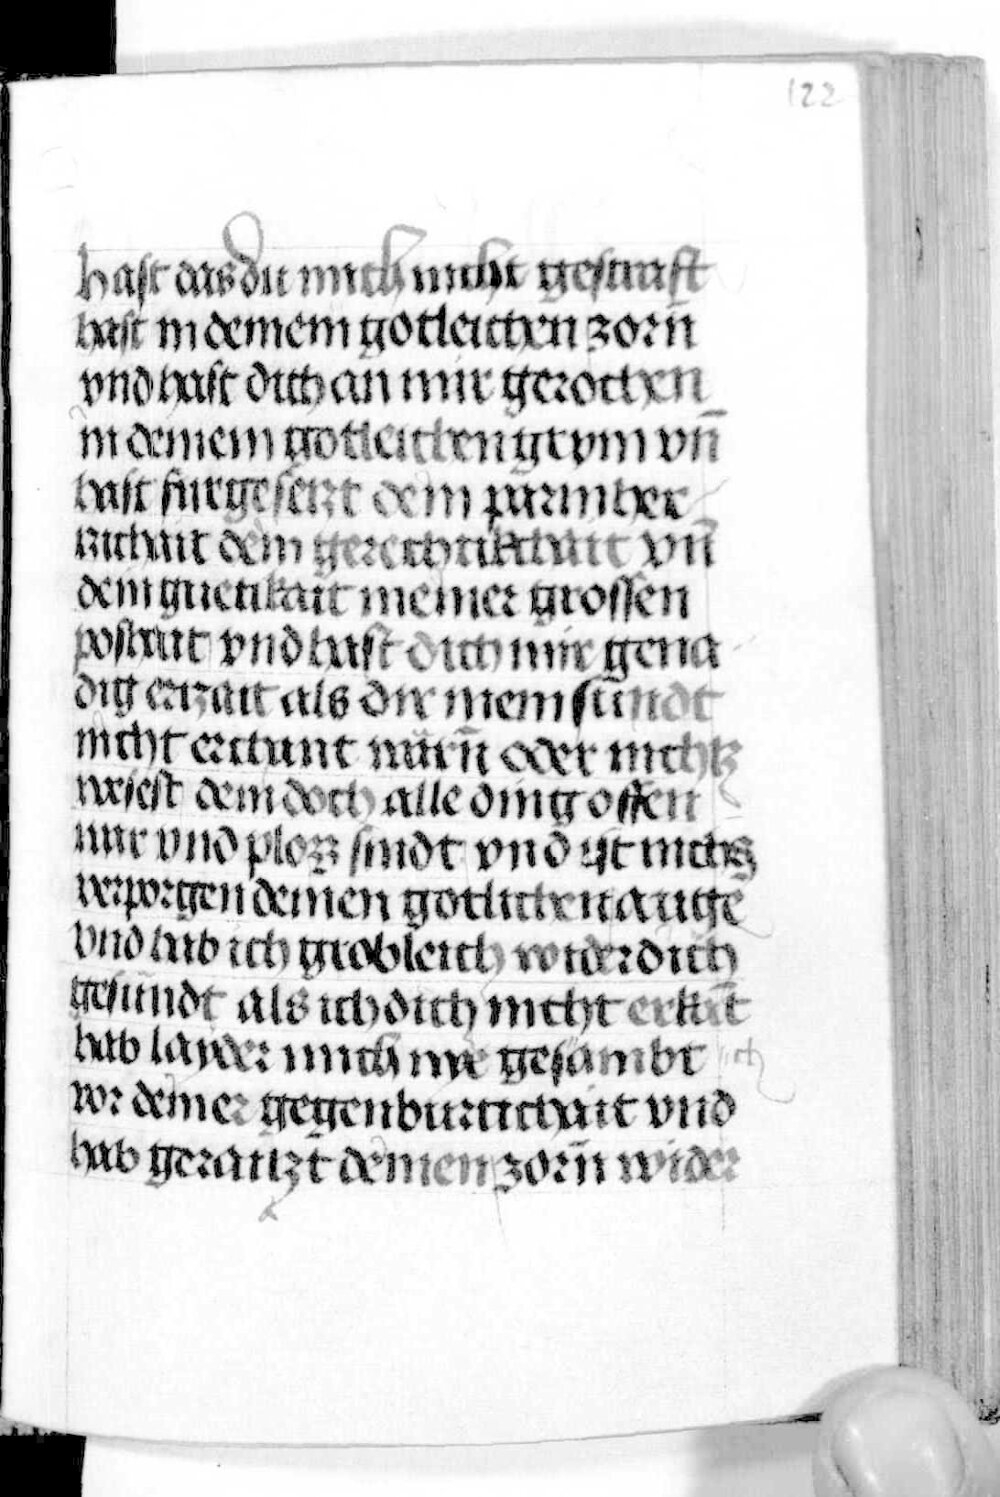 122
hast das du mich nicht gestrafft
hast in deinem gotleichen zorñ
vnd hast dich an mir gerochen
in deinem gotleichen grym vñ
hast fürgesetzt dein parmher
tzichait dein gerechtikchait vñ
dein guetikait meiner grossen
poshait vnd hast dich mir gena
dig erzait als dir mein sündt
nicht erchant wärñ oder nichtz
wesest dem doch alle ding offen
war vnd plozz sindt vnd ist nichtz
verporgen deinen gotlichen augē
vnd hab ich grobleich wider dich
gesündt als ich dich nicht erkāt
hab layder mich nye gesambt
vor deiner gegenburtichait vnd
hab geraitzt deinen zorñ wider